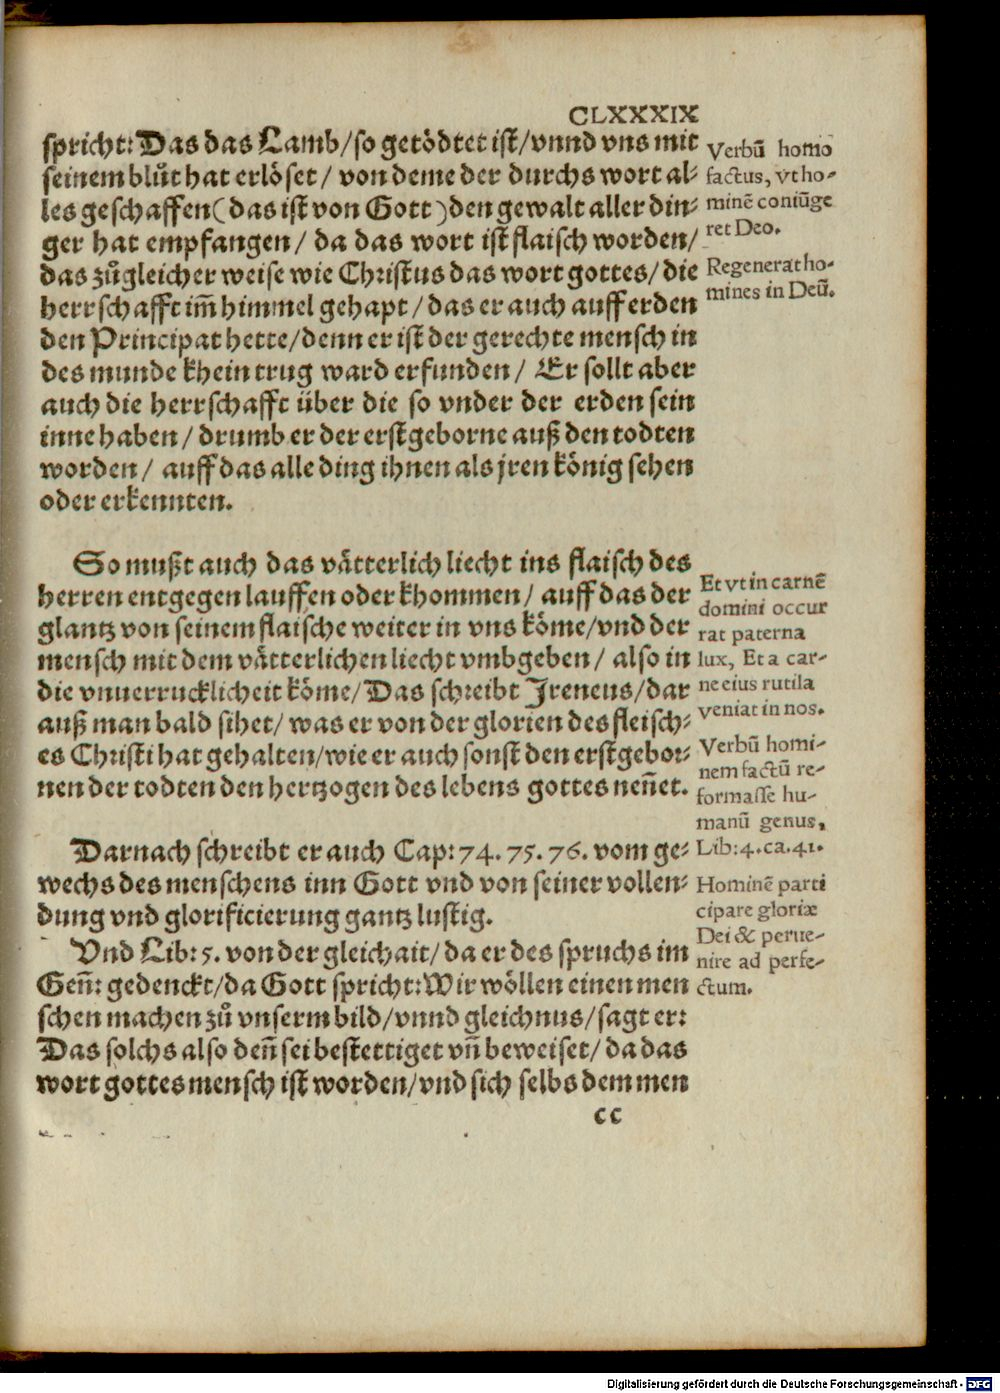 CLXXXIX
spricht: Das das Lamb/so getödtet ist/vnnd vns mit
seinem blůt hat erlöset/ von deme der durchs wort al-
les geschaffen(das ist von Gott)den gewalt aller din-
ger hat empfangen/ da das wort ist flaisch worden/
das zůgleicher weise wie Christus das wort gottes/die
herrschafft im̃ himmel gehapt/das er auch auff erden
den Principat hette/denn er ist der gerechte mensch in
des munde khein trug ward erfunden/ Er sollt aber
auch die herrschafft über die so vnder der erden sein
inne haben/ drumb er der erstgeborne auß den todten
worden/ auff das alle ding ihnen als jren könig sehen
oder erkennten.
Verbũ homo
factus, vt ho-
minẽ coniũge
ret Deo.
Regenerat ho-
mines in Deũ.
So mußt auch das vätterlich liecht ins flaisch des
herren entgegen lauffen oder khommen/ auff das der
glantz von seinem flaische weiter in vns köme/vnd der
mensch mit dem vätterlichen liecht vmbgeben/ also in
die vnuerrucklicheit köme/Das schreibt Ireneus/dar
auß man bald sihet/ was er von der glorien des fleisch-
es Christi hat gehalten/wie er auch sonst den erstgebor-
nen der todten den hertzogen des lebens gottes nen̄et.
Et vt in carnẽ
domini occur
rat paterna
lux, Et a car-
ne eius rutila
veniat in nos.
Verbũ homi-
nem factũ re-
formasse hu-
manũ genus,
Lib:4.ca.41.
Darnach schreibt er auch Cap:74.75.76.vom ge-
wechs des menschens inn Gott vnd von seiner vollen-
dung vnd glorificierung gantz lustig.
Vnd Lib:5. von der gleichait/da er des spruchs im
Gen̄: gedenckt/da Gott spricht:Wir wöllen einen men
schen machen zů vnserm bild/vnnd gleichnus/sagt er:
Das solchs also den̄ sei bestettiget vn̄ beweiset/da das
wort gottes mensch ist worden/vnd sich selbs dem men
Hominẽ parti
cipare gloriæ
Dei & perue-
nire ad perfe-
ctum.
cc
Digitalisierung gefördert durch die Deutsche Forschungsgemeinschaft - DFG